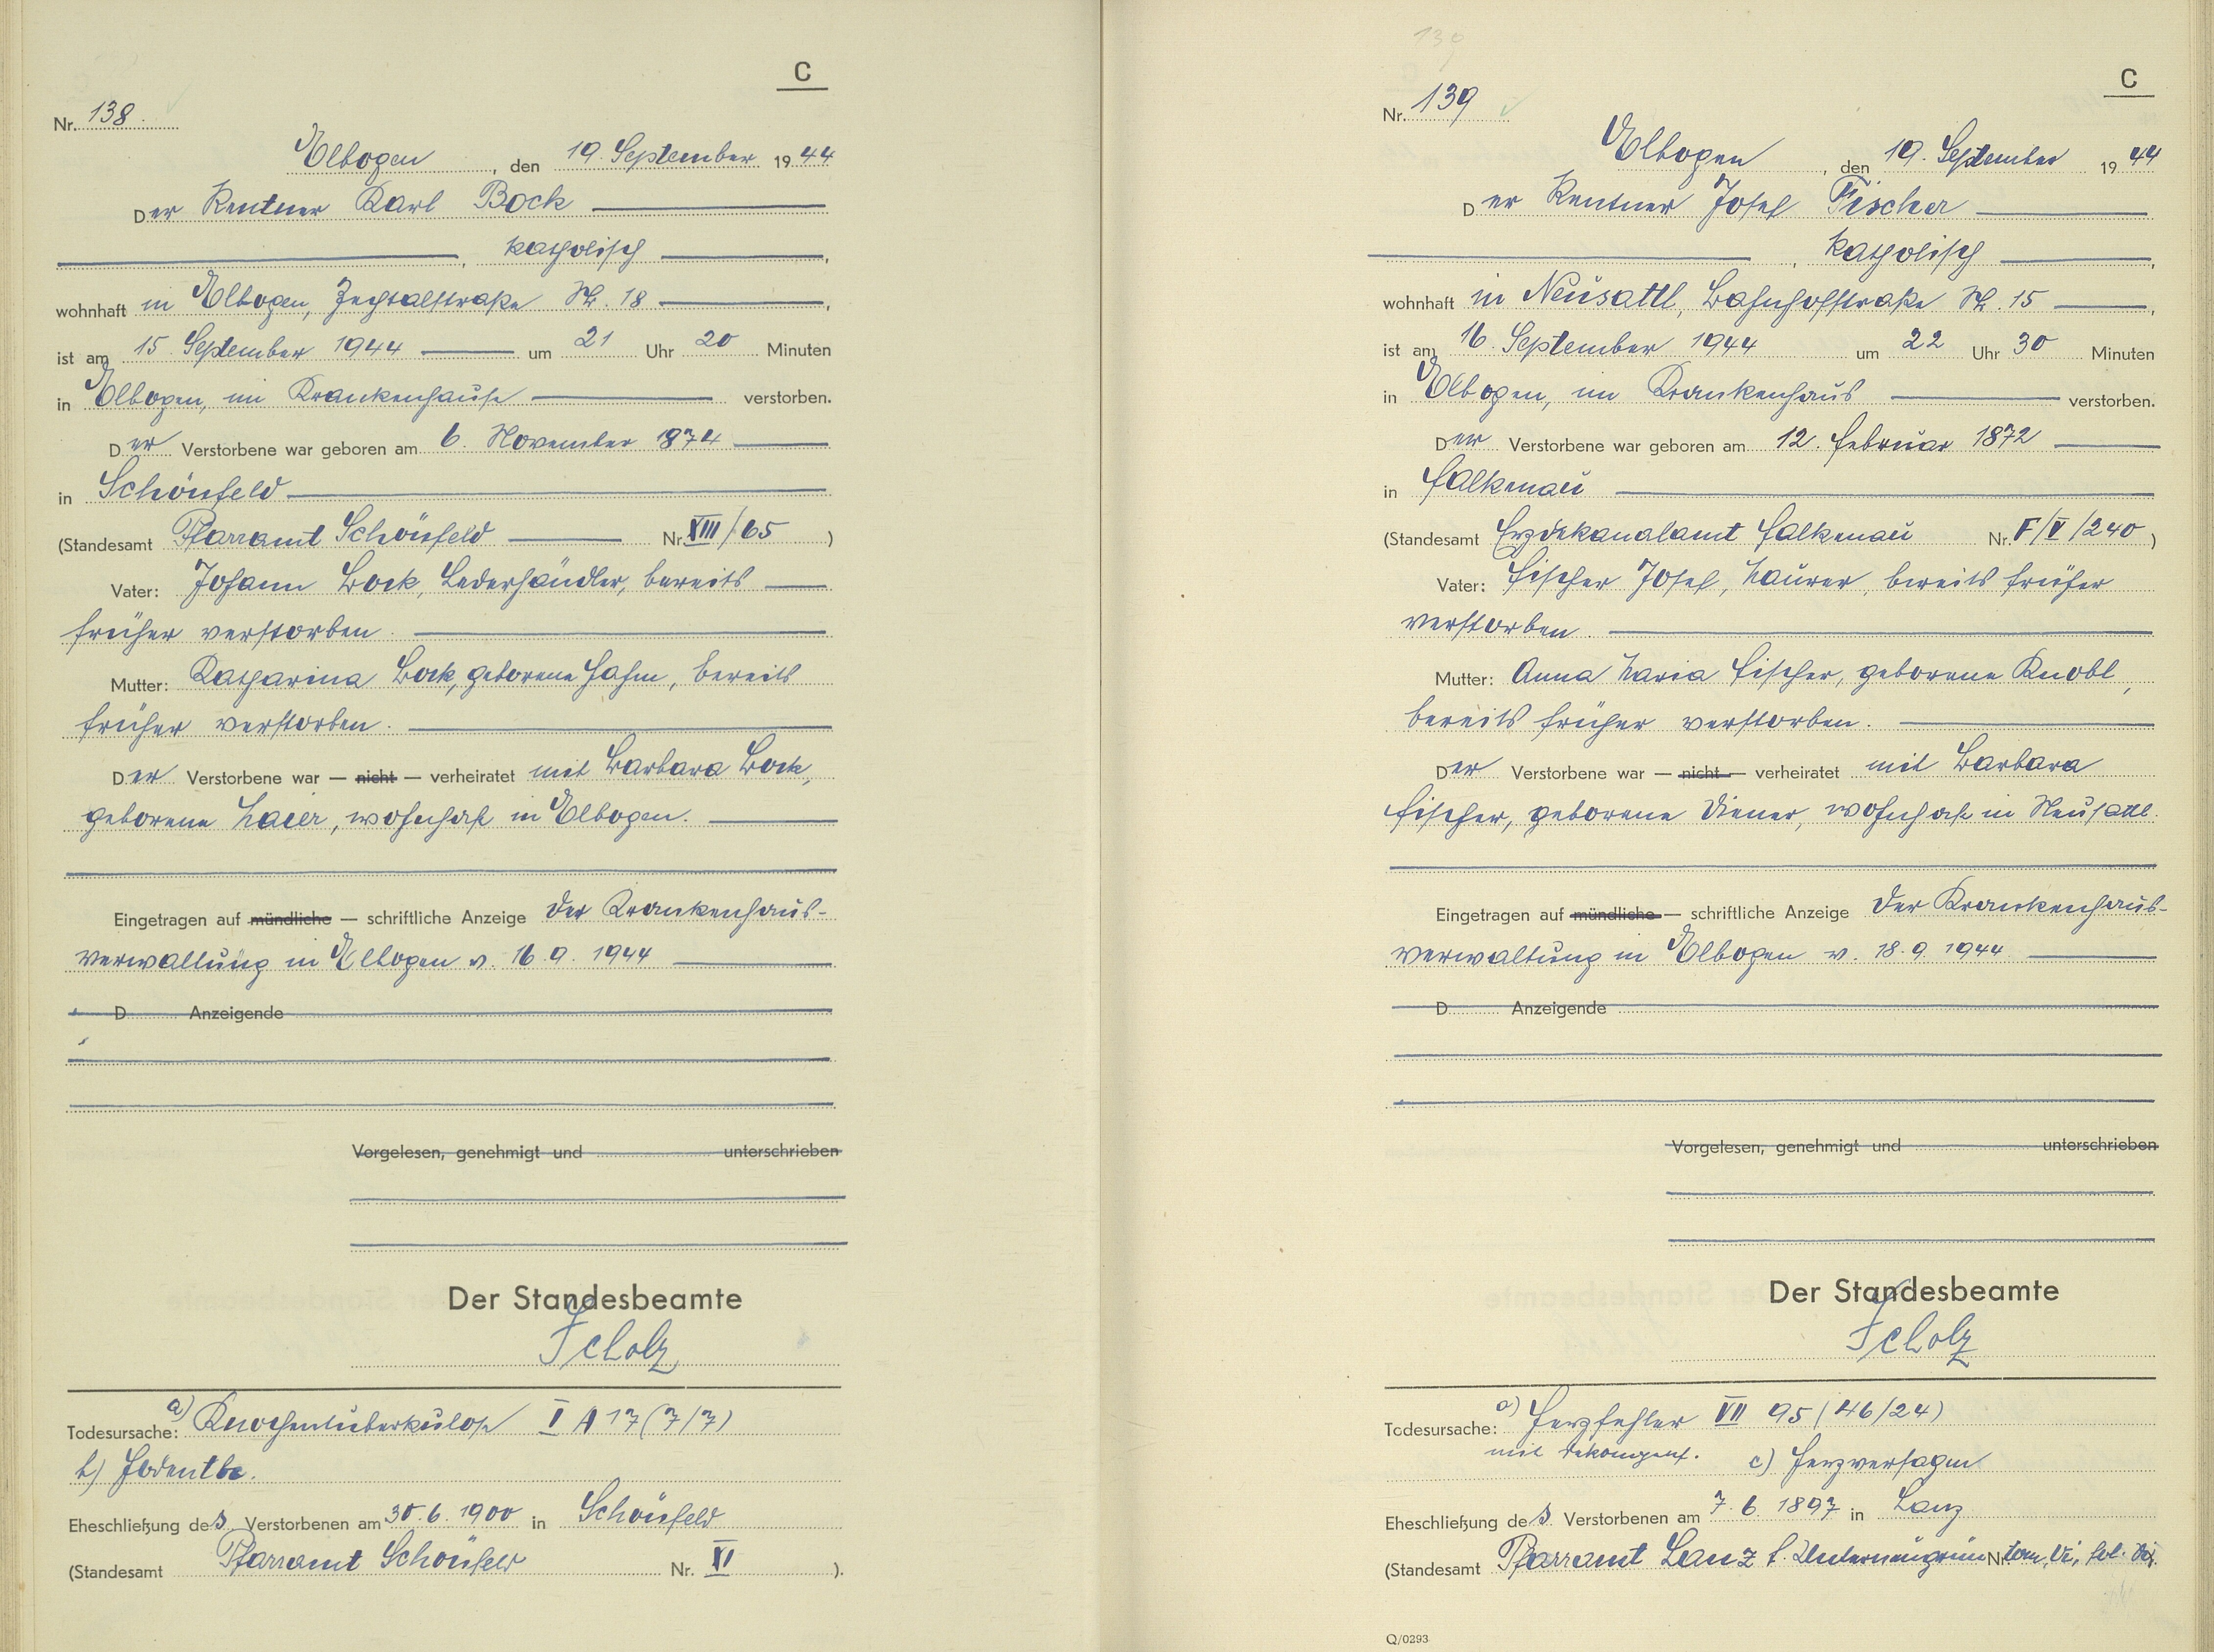 C
Nr. 138.
Elbogen, den 19. September 1944
Der Rentner Karl Bock
, katholisch ,
wohnhaft in Elbogen, Zechtalstraße Nr. 18 ,
ist am 15. September 1944 um 21 Uhr 20 Minuten
in Elbogen, im Krankenhause verstorben.
Der Verstorbene war geboren am 6. November 1874
in Schönfeld
(Standesamt Pfarramt Schönfeld Nr. XIII/65 )
Vater: Johann Bock, Lederhändler, bereits
früher verstorben.
Mutter: Katharina Bock, geborene Hahn, bereits
früher verstorben.
Der Verstorbene war — nicht — verheiratet mit Barbara Bock,
geborene Maier, wohnhaft in Elbogen.
Eingetragen auf mündliche — schriftliche Anzeige der Krankenhaus-
verwaltung in Elbogen v. 16.9.1944
D Anzeigende
Vorgelesen, genehmigt und unterschrieben
Der Standesbeamte
Scholz
Todesursache: a) Knochentuberkulose I A 17 (7/7)
b) Hodentbc.
Eheschließung des Verstorbenen am 30.6.1900 in Schönfeld
(Standesamt Pfarramt Schönfeld Nr. XI ).
139
C
Nr. 139
Elbogen, den 19. September 1944
Der Rentner Josef Fischer
, katholisch ,
wohnhaft in Neusattl, Bahnhofstraße Nr. 15 ,
ist am 16. September 1944 um 22 Uhr 30 Minuten
in Elbogen, im Krankenhaus verstorben.
Der Verstorbene war geboren am 12. Februar 1872
in Falkenau
(Standesamt Erzdekanalamt Falkenau Nr. F/V/240 )
Vater: Fischer Josef, Maurer, bereits früher
verstorben.
Mutter: Anna Maria Fischer, geborene Knobl,
bereits früher verstorben.
Der Verstorbene war — nicht — verheiratet mit Barbara
Fischer, geborene Diener, wohnhaft in Neusattl.
Eingetragen auf mündliche — schriftliche Anzeige der Krankenhaus-
verwaltung in Elbogen v. 18.9.1944
D Anzeigende
Vorgelesen, genehmigt und unterschrieben
Der Standesbeamte
Scholz
Todesursache: a) Herzfehler VII 95 (46/24)
mit dekompens. c) Herzversagen
Eheschließung des Verstorbenen am 7.6.1897 in Lanz
(Standesamt Pfarramt Lanz f. Unterneugrün Nr. tom. VI, fol.
Q/0293